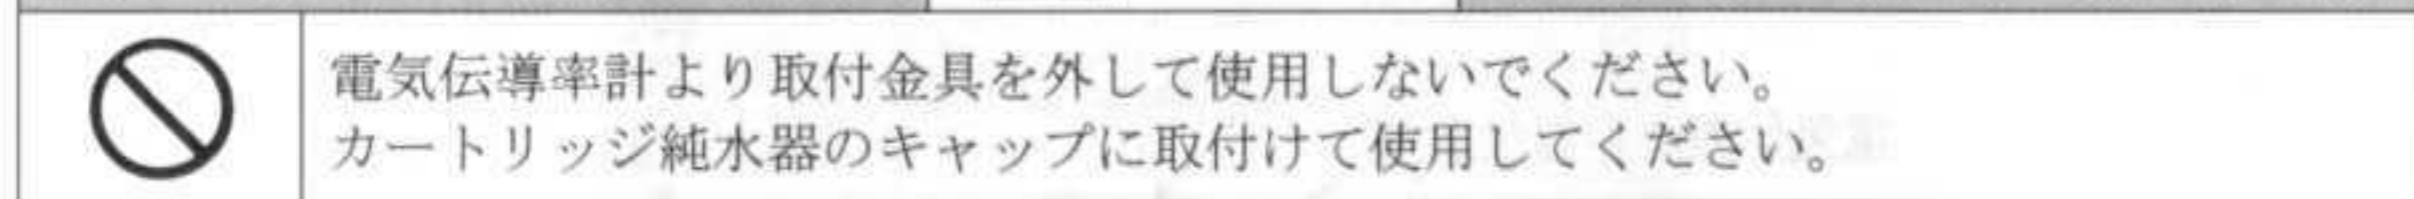 電気伝導率計より取付金具を外して使用しないでください。
カートリッジ純水器のキャップに取付けて使用してください。